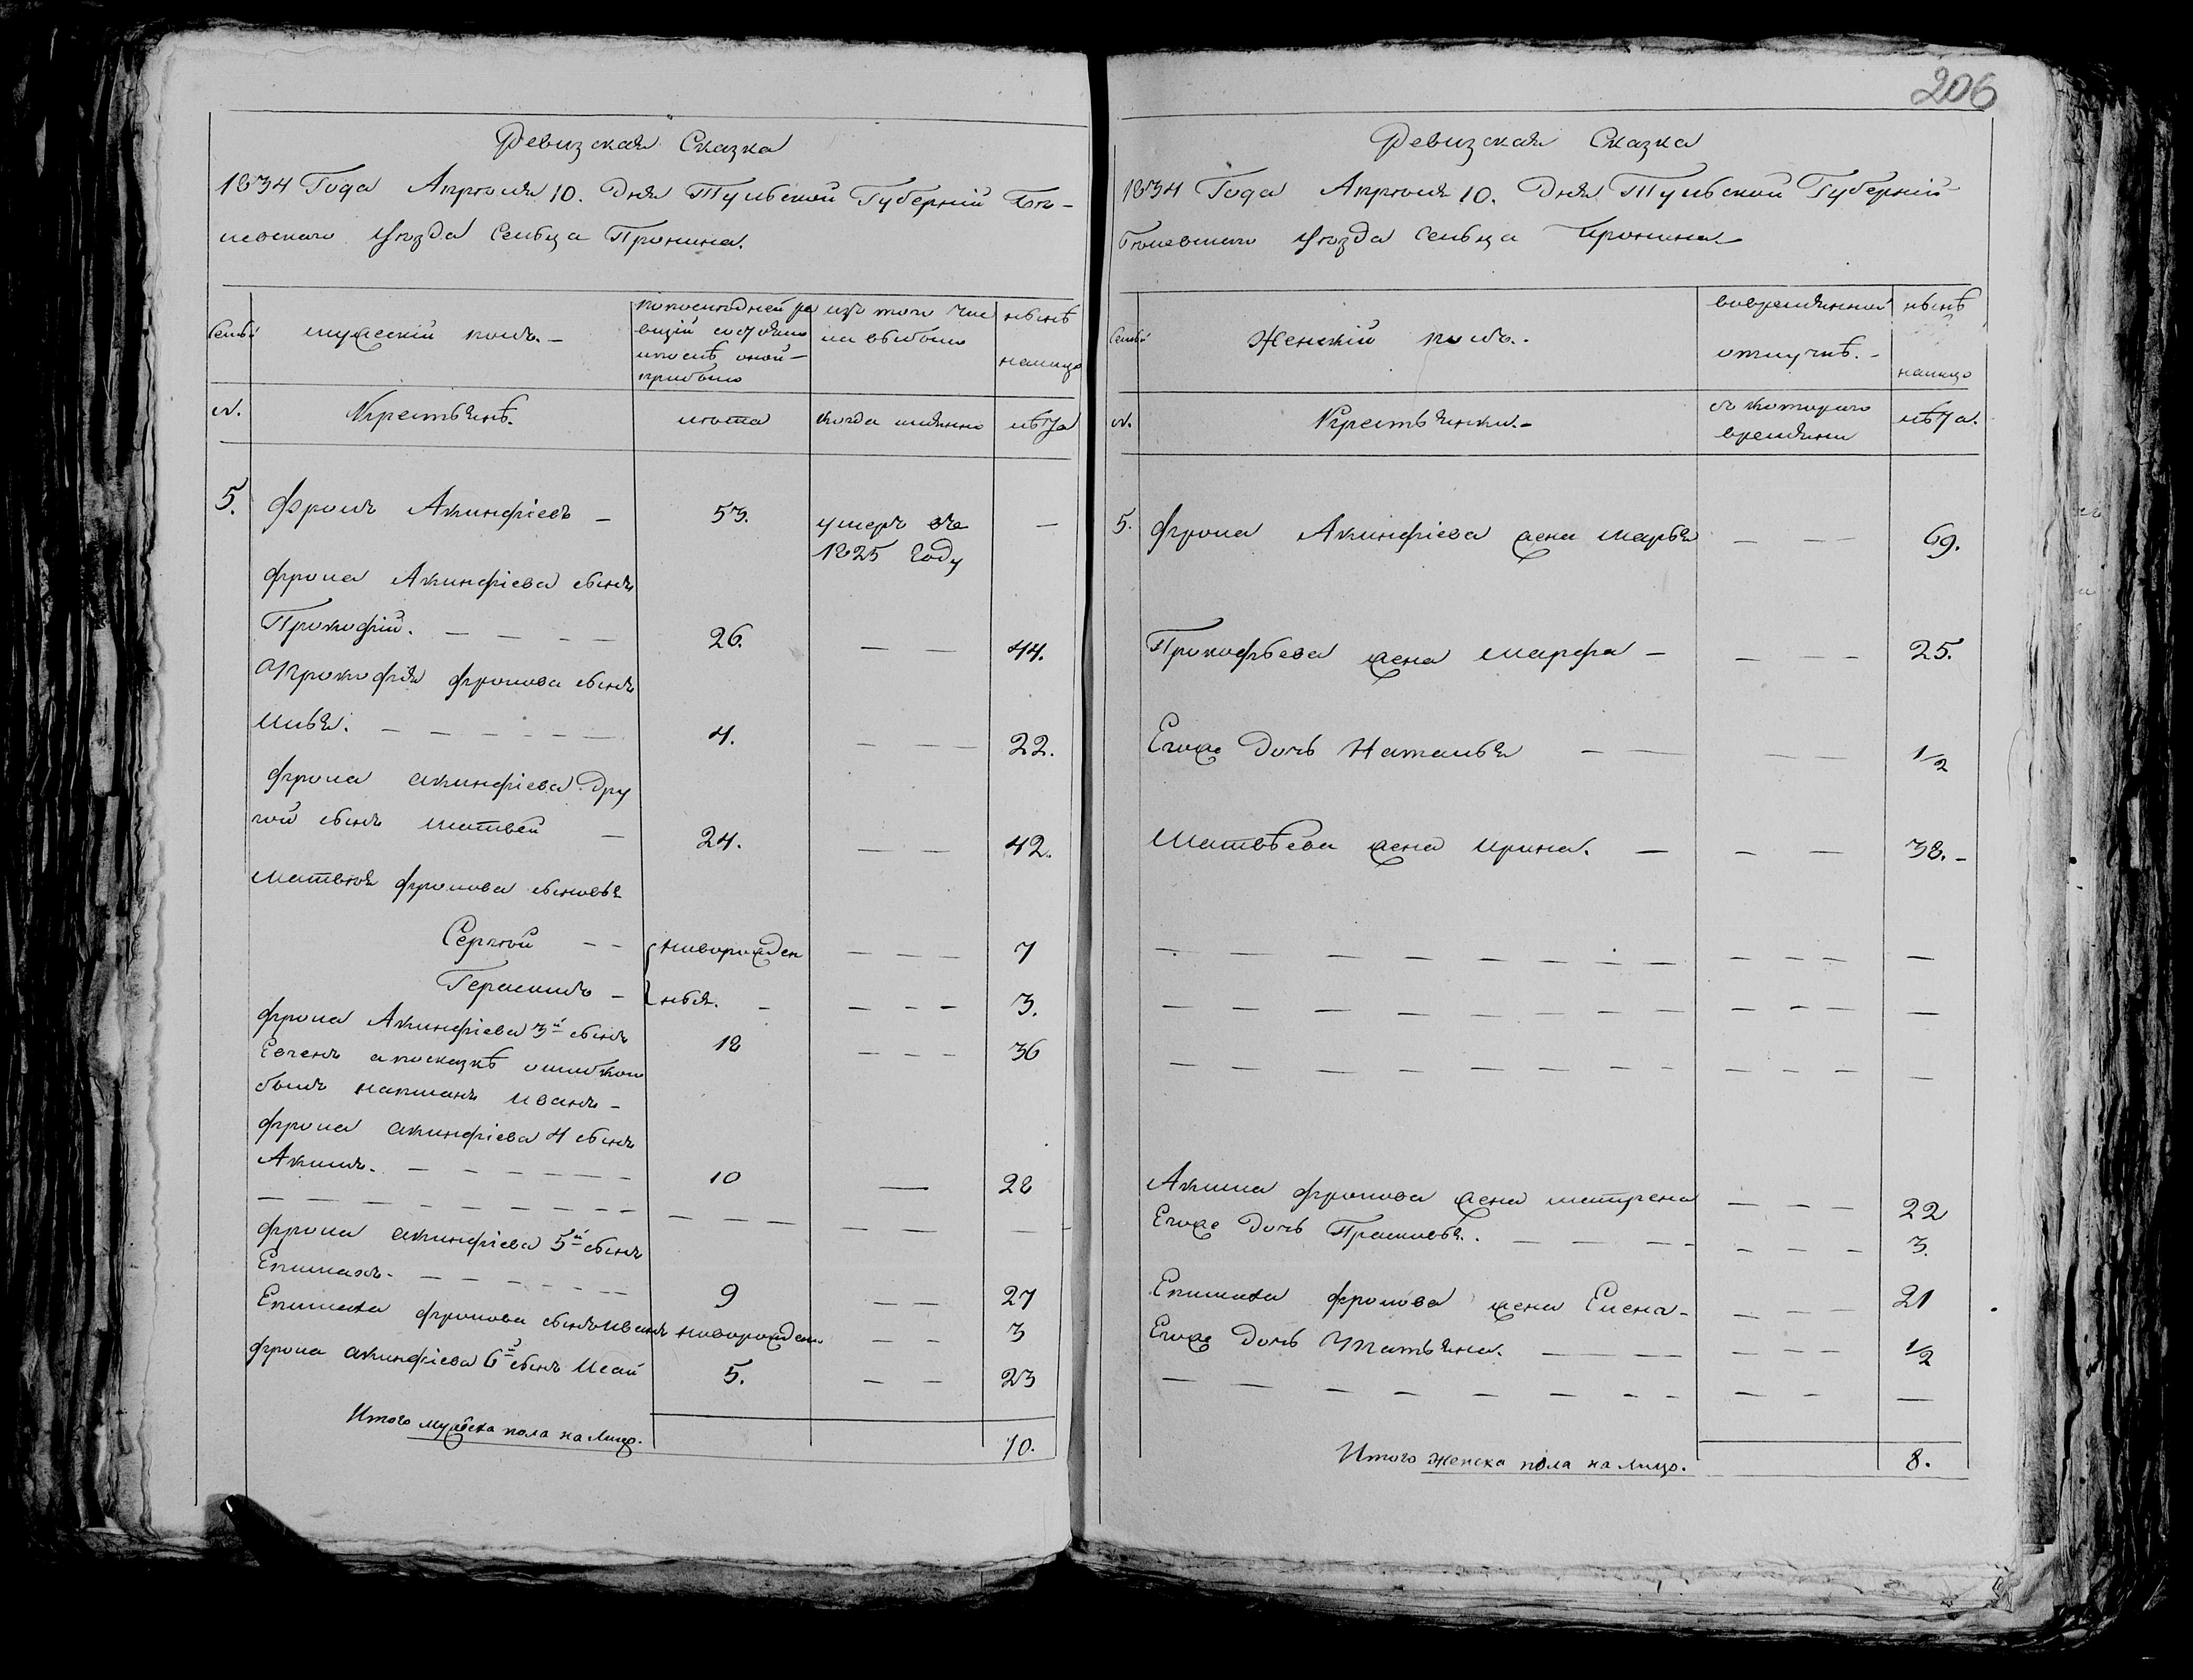 Ревизская Сказка
1834 Года Апрѣля 10. Дня Тульской Губерній Бѣ-
левскаго уѣзда Сельца Пронина.
Семьи
мужескій полъ. –
попоследней ре
визіи состояло
ипослѣ оной –
прибыло
изъ того чис
ла выбыло
нынѣ
налицо
№.
Крестьянѣ.
лѣта
когда имянно
лѣта
5. Фролъ Акинфіевъ – 53. умеръ въ —
1825 году
Фрола Акинфіева сынъ
Прокофій. — — — — 26. — — 44.
Прокофія Фролова сынъ
Илья. — — — — — — 4. — — — 22.
Фрола акинфіева дру
гой сынъ Матвей — 24. — — 42.
Матвѣя Фролова сыновья
Сергѣй – – новорожден — — — 7
Герасимъ – ныя. – — — — 3.
Фрола Акинфіева 3й сынъ 18 — — — 36
Евгенъ апосказкѣ ошибкою
былъ написанъ Иванъ –
Фрола акинфіева 4 сынъ
Акимъ. — — — — — 10 — 28
— — — — — — — — — — — — —
Фрола акинфіева 5й сынъ
Епишахъ. — — — — — — 9 — — 27
Епишаха Фролова сынъ Иванъ новорожден — — 3
Фрола акинфіева 6й сынъ Исай 5. — — 23
Итого мужеска пола на лицо. 10.
206
Ревизская Сказка
1834 Года Апрѣля 10. Дня Тульской Губерній
Бѣлевскаго уѣзда сельца Пронина
Семьи
Женскій полъ. –
вовременной
отлучкѣ. –
нынѣ
налицо
№.
Крестьянки. –
съ котораго
времяни
лѣта.
5. Фрола Акинфіева жена Марья — — — 69.
Прокофьева жена Марфа — — — — 25.
Егожъ дочь Наталья — — — — 1/2
Матвѣева жена Ирина. — — — 38. –
— — — — — — — — — — — —
— — — — — — — — — — — —
— — — — — — — — — — — —
Акима Фролова жена матрена — — — 22
Егожъ дочь Прасковья. — — — — — — 3.
Епишаха Фролова жена Елена – — — — 21
Егожъ дочь Татьяна. — — — — — — 1/2
— — — — — — — — — — —
Итого женска пола на лицо. 8.